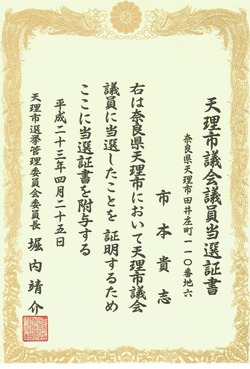 天理市議会議員当選証書
奈良県天理市田井庄町一一〇番地六
市本貴志
右は奈良県天理市において天理市議会
議員に当選したことを証明するため
ここに当選証書を附与する
平成二十三年四月二十五日
天理市選挙管理委員会委員長 堀内靖介